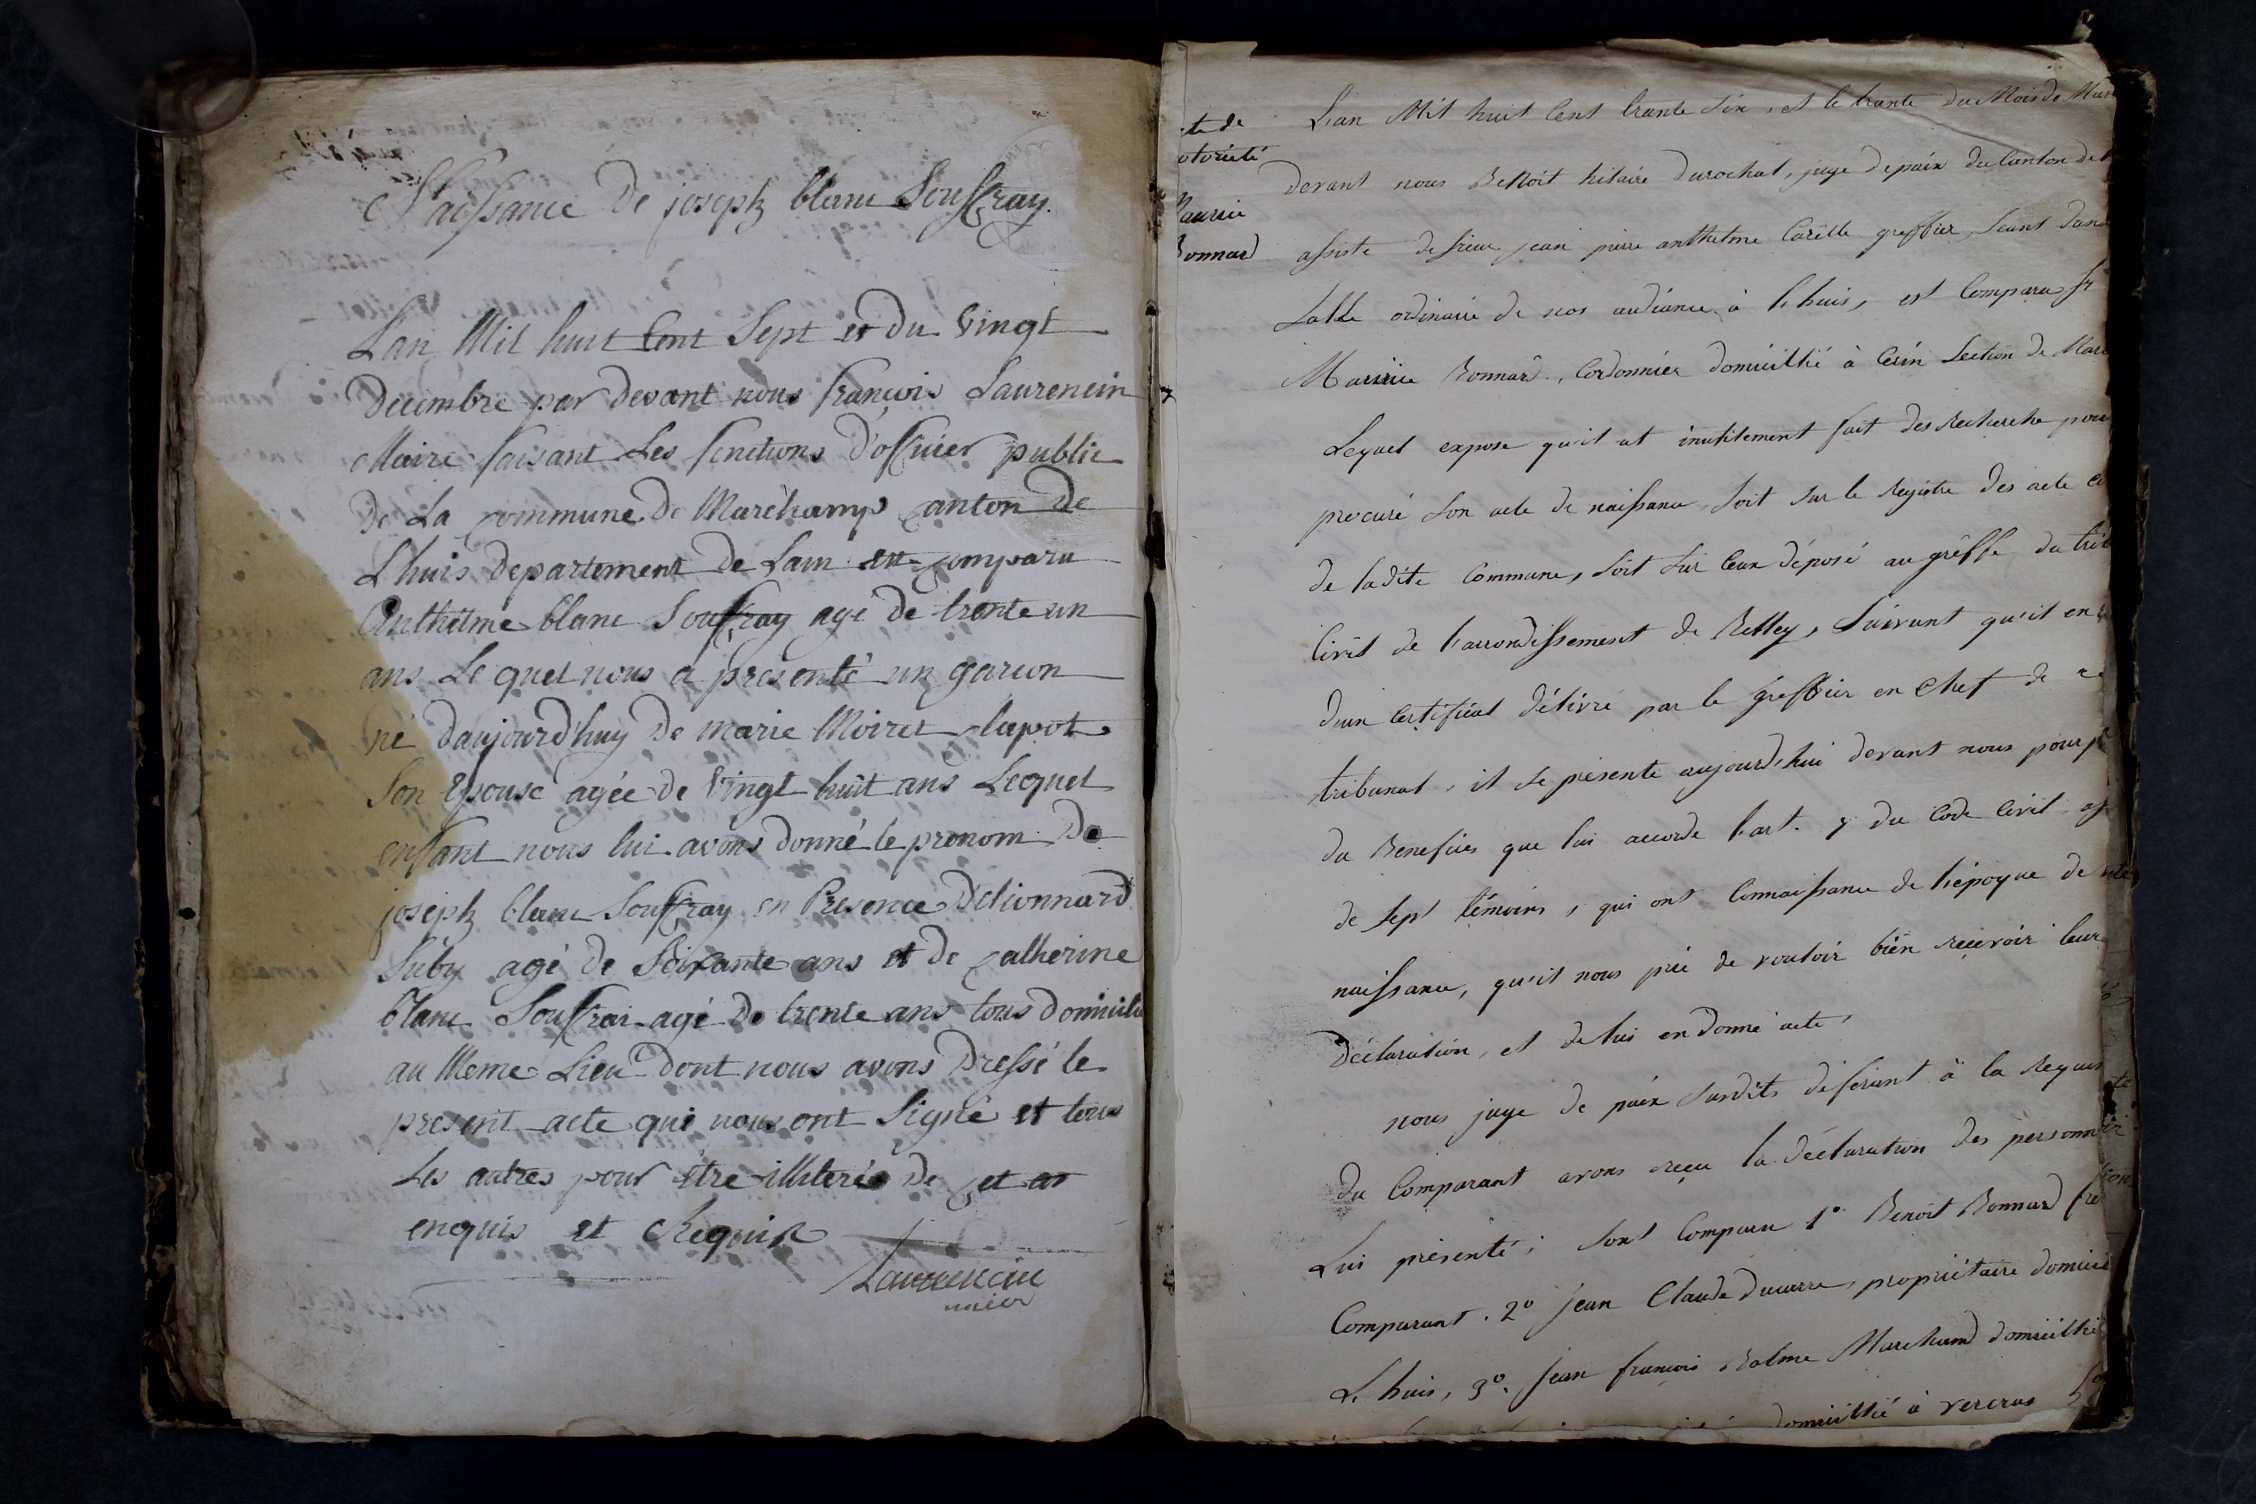 Naissance De joseph blanc Souffray.
Lan Mil huit Cent Sept et du Vingt
Decimbre par devant nous françois Laurencin
Maire faisant Les fonctions D'officier public
De La commune De Marchamp canton De
Lhuis departement de Lain est comparu
Anthelme blanc Souffray agé de trente un
ans Le quel nous a presenté un garcon
né daujourdhuy De marie Moiret
Son Epouse agée de Vingt huit ans Lequel
enfant nous lui avons donné le pronom De
joseph blanc Souffray en Presence
agé de Soixante ans et de Catherine
blanc Souffrai agé De trente ans tous domicilié
au Meme Lieu Dont nous avons Dressé le
present acte qui nous ont Signé et tous
Les autres pour être illiteré De cet
enquis et Requis
Laurencin
te de
otorieté
Maurice
Bonnard
L'an Mil huit Cent trante Six, et le trante du Mois de
devant nous Benoit hilaire Durochat, juge de paix du Canton de
assisté de sieur jean pierre anthelme greffier, Seant dans
Salle ordinaire de nos audiance à l'huis, est Comparu Sr
Maurice Bonnard, Cordonnier domicillié à Cerin Section de
Lequel expose qu'il at inutilement fait des Recherche pour
procuré Son acte de naissance, Soit Sur le Registre des acte
de ladite Commune, Soit Sur Ceux déposé au greffe du
Civil de l'arrondissement de Belley, Suivant qu'il en
d'un Certificat délivré par le greffier en Chef de
tribunal, il se présente aujourd'hui devant nous pour
du Benefice que lui accorde l'art. du Code Civil
de Sept témoins, qui ont Connaissance de l'époque de
naissance, qu'il nous prie de vouloir bien recevoir leur
déclaration, et de lui en donné acte,
nous juge de paix Susdit, déferant à la
du Comparant avons reçu la déclaration des
Lui présenté; Sont Comparu 1° Benoit Bonnard
Comparant. 2° jean Claude Ducarre, propriétaire
L'huis, 3°. jean françois Balme Marchand domicillié
domicillié à